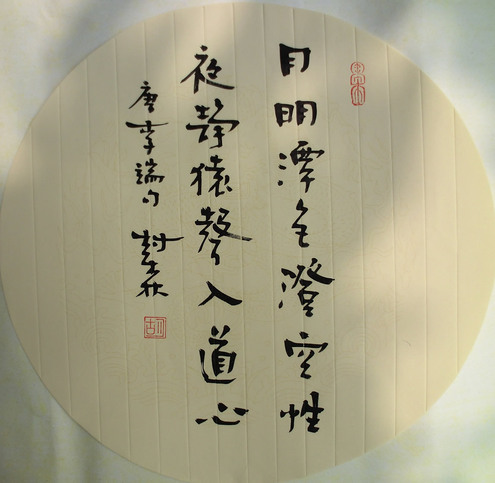 月明潭色澄空性
夜静猿聲入道心
唐李端句